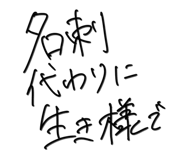 名刺
代わりに
生き様で